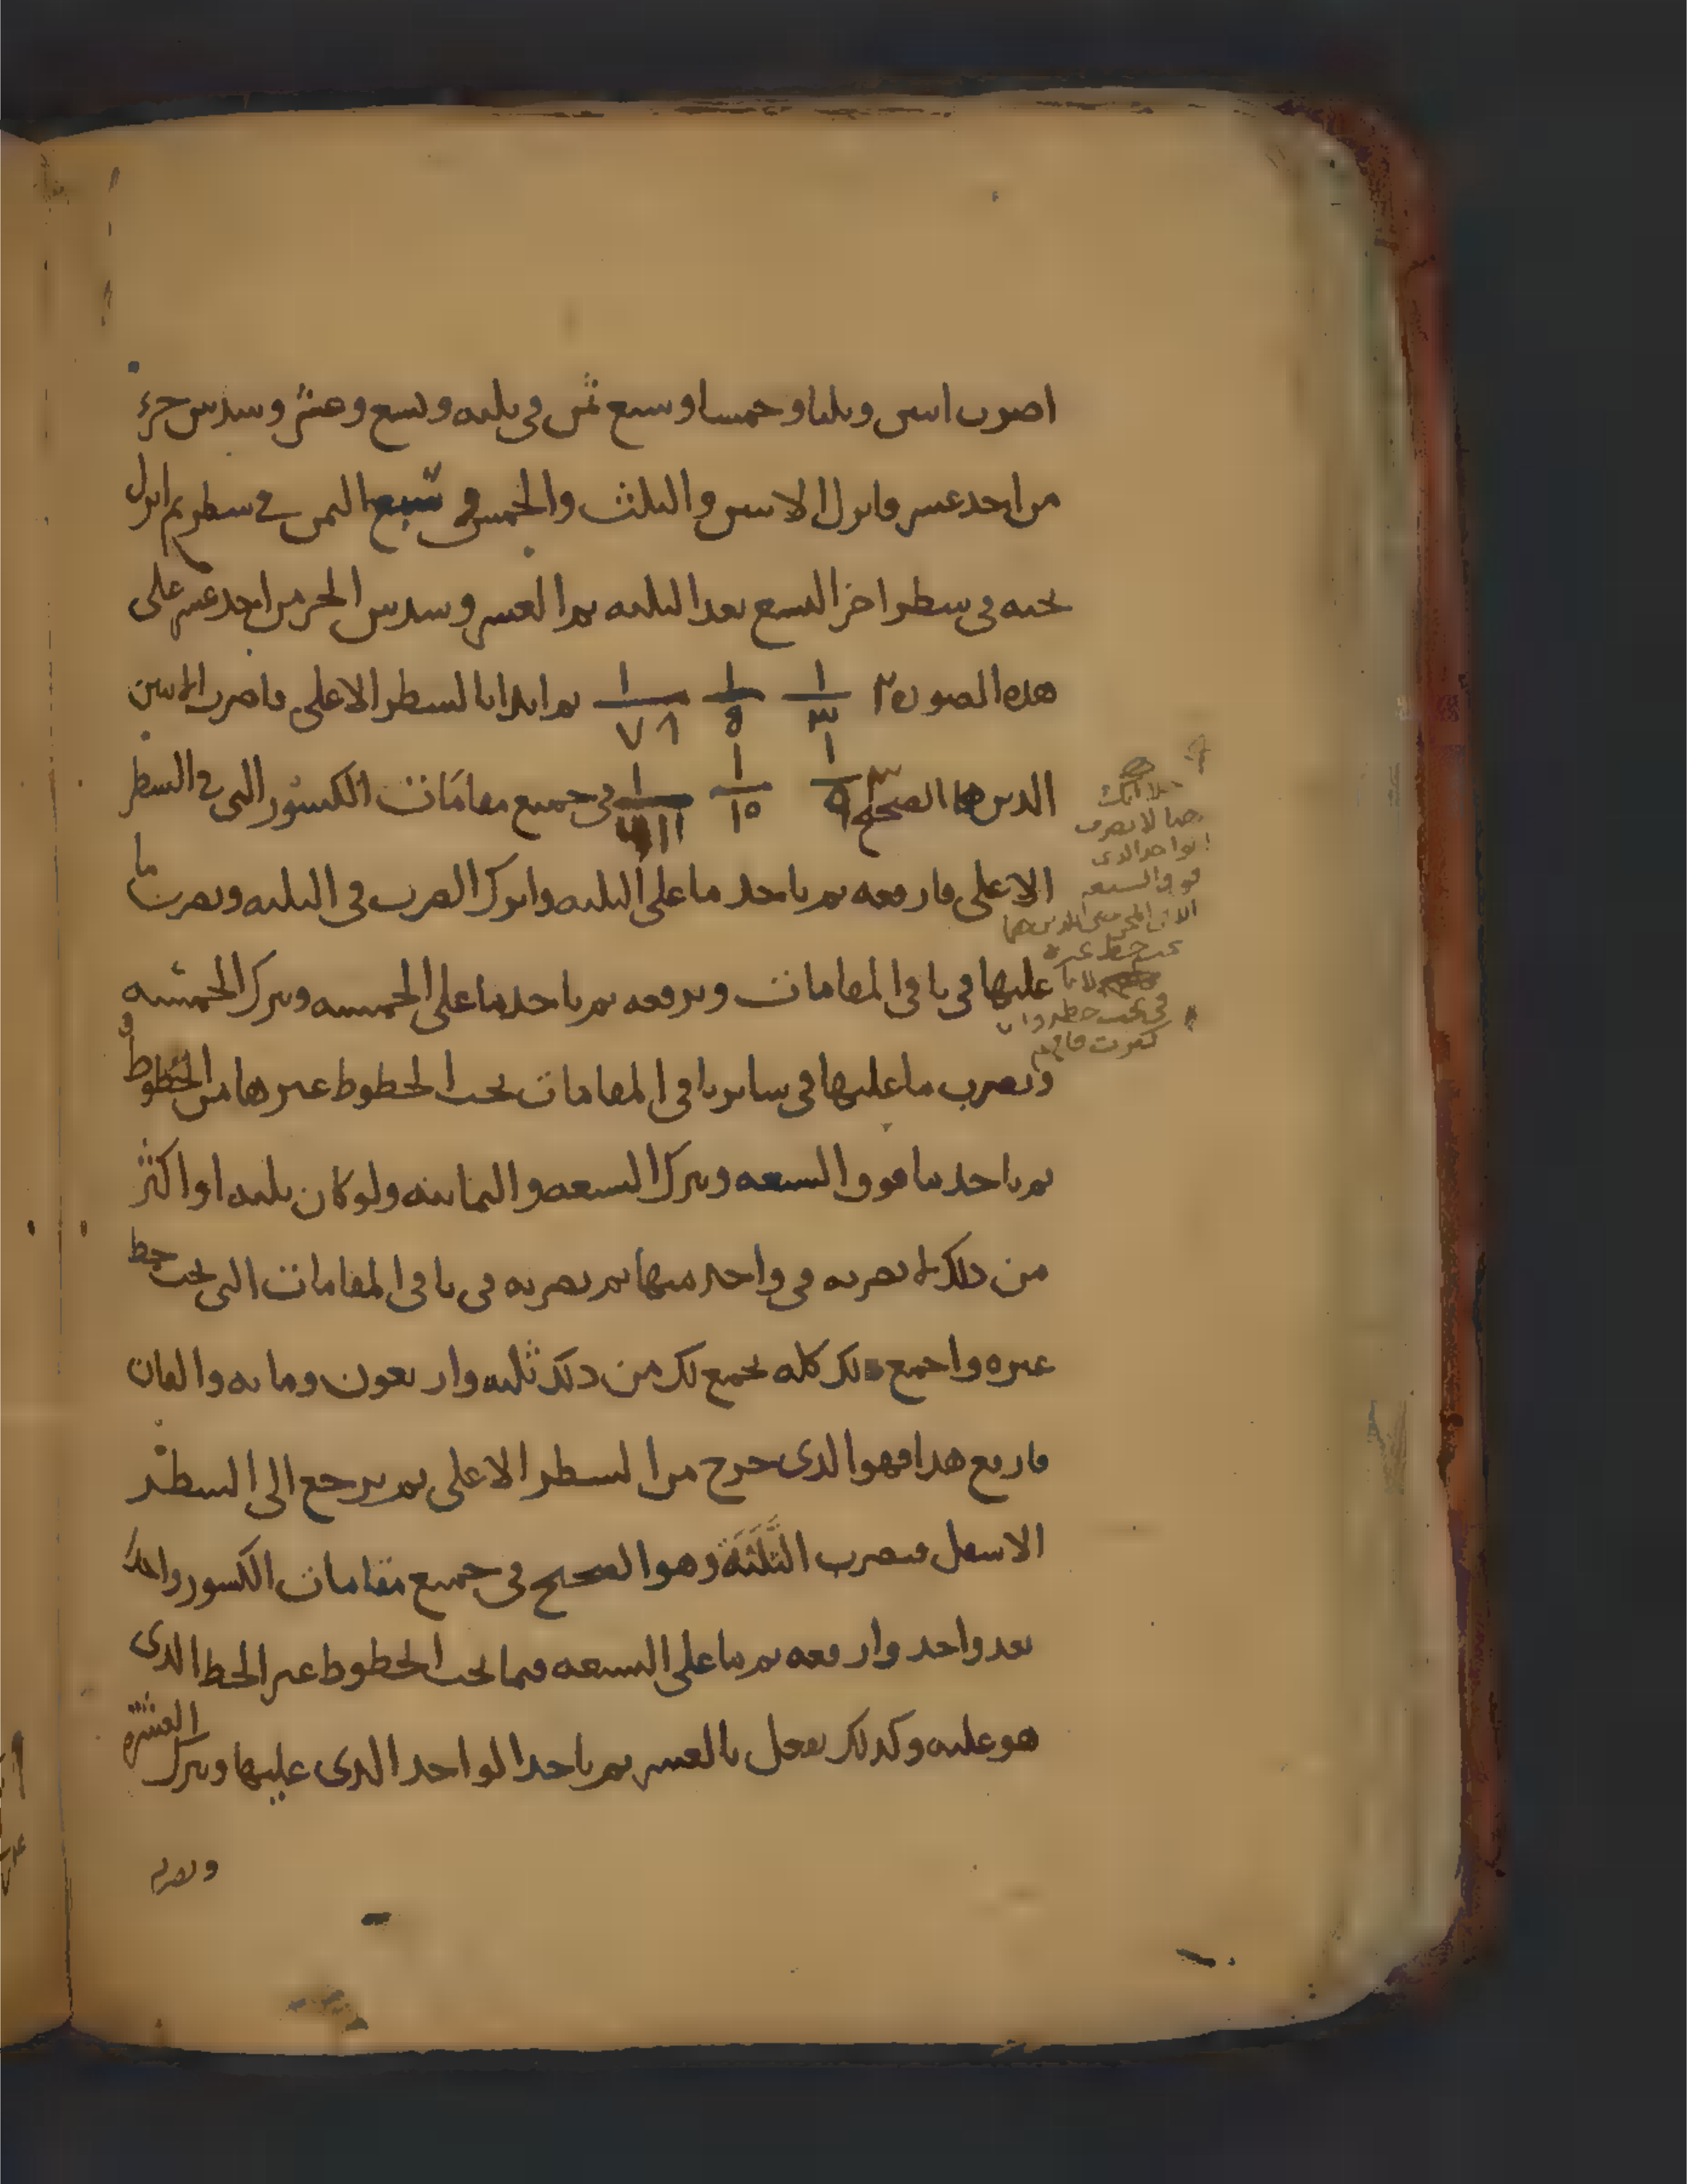 اضرب اثنين وثلثا وخمسا وسبع ثمن في ثلثه وتسع وعشر وسدس جزء
من احد عشر فانزل الاثنين والثلث والخمس وسبع الثمن في سطر ثم انزل
تحته في سطر اخر التسع بعد الثلثه ثم العشر وسدس الجز من احد عشر على
هذه الصوره ٢ ١/٣ ١/٥ ١/٧٨ ثم ابدا بالسطر الاعلى فاضرب الاثنين
الذين هما الصحيح ٣ ١/٩ ١/١٠ ١/٦١١ في جميع مقامات الكسور التي في السطر
الاعلى فارفعه ثم ياخذ ما على الثلثه واترك الضرب في الثلثه وتضرب ما
عليها في باقي المقامات وترفعه ثم ياخذ ما على الخمسه وتترك الخمسه
وتضرب ما عليها في ساير باقي المقامات تحت الخطوط غيرها من الخطوط
ثم ياخذ ما فوق السبعه وتترك السبعه والثمانيه ولو كان ثلثه او اكثر
من ذلك لا تضربه في واحد منها ثم تضربه في باقي المقامات التي تحت خط
غيره واجمع ذلك كله يجمع لك من ذلك ثلثه واربعون ومايه والفان
فارفع هذا فهو الذي خرج من السطر الاعلى ثم يرجع الى السطر
الاسفل فتضرب الثَّلَثَةَ وهو الصحيح في جميع مقامات الكسور واحدا
بعد واحد وارفعه ثم ما على التسعه فيما تحت الخطوط غير الخط الذي
هو عليه وكذلك تفعل بالعشر ثم ياخذ الواحد الذي عليها وتترك العشره
وتضربه
لا يضرب
الواحد الذي
فوق السبعه
تحت خط غيره